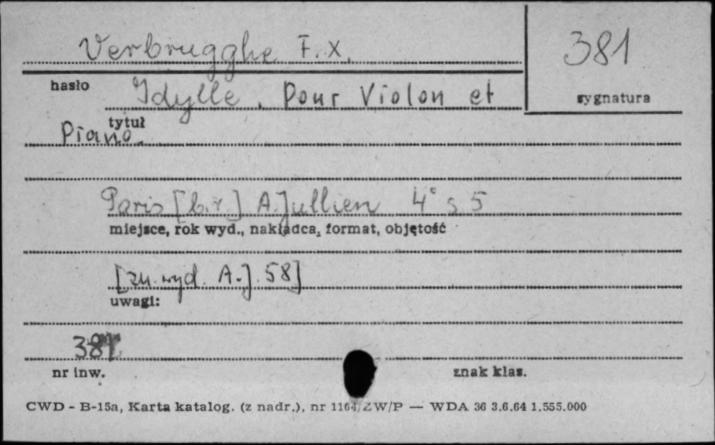 Verbrugghe F.X.
381
hasło
sygnatura
Idylle. Pour Violon et
tytuł
Piano.
Paris [b.r.] A. Jullien 4° s 5
miejsce, rok wyd., nakładca, format, objętość
[zn. wyd. A. J. 58]
uwagi:
381
nr inw.
znak klas.
CWD - B-15a, Karta katalog. (z nadr.), nr 1164/ZW/P — WDA 36 3.6.64 1.555.000